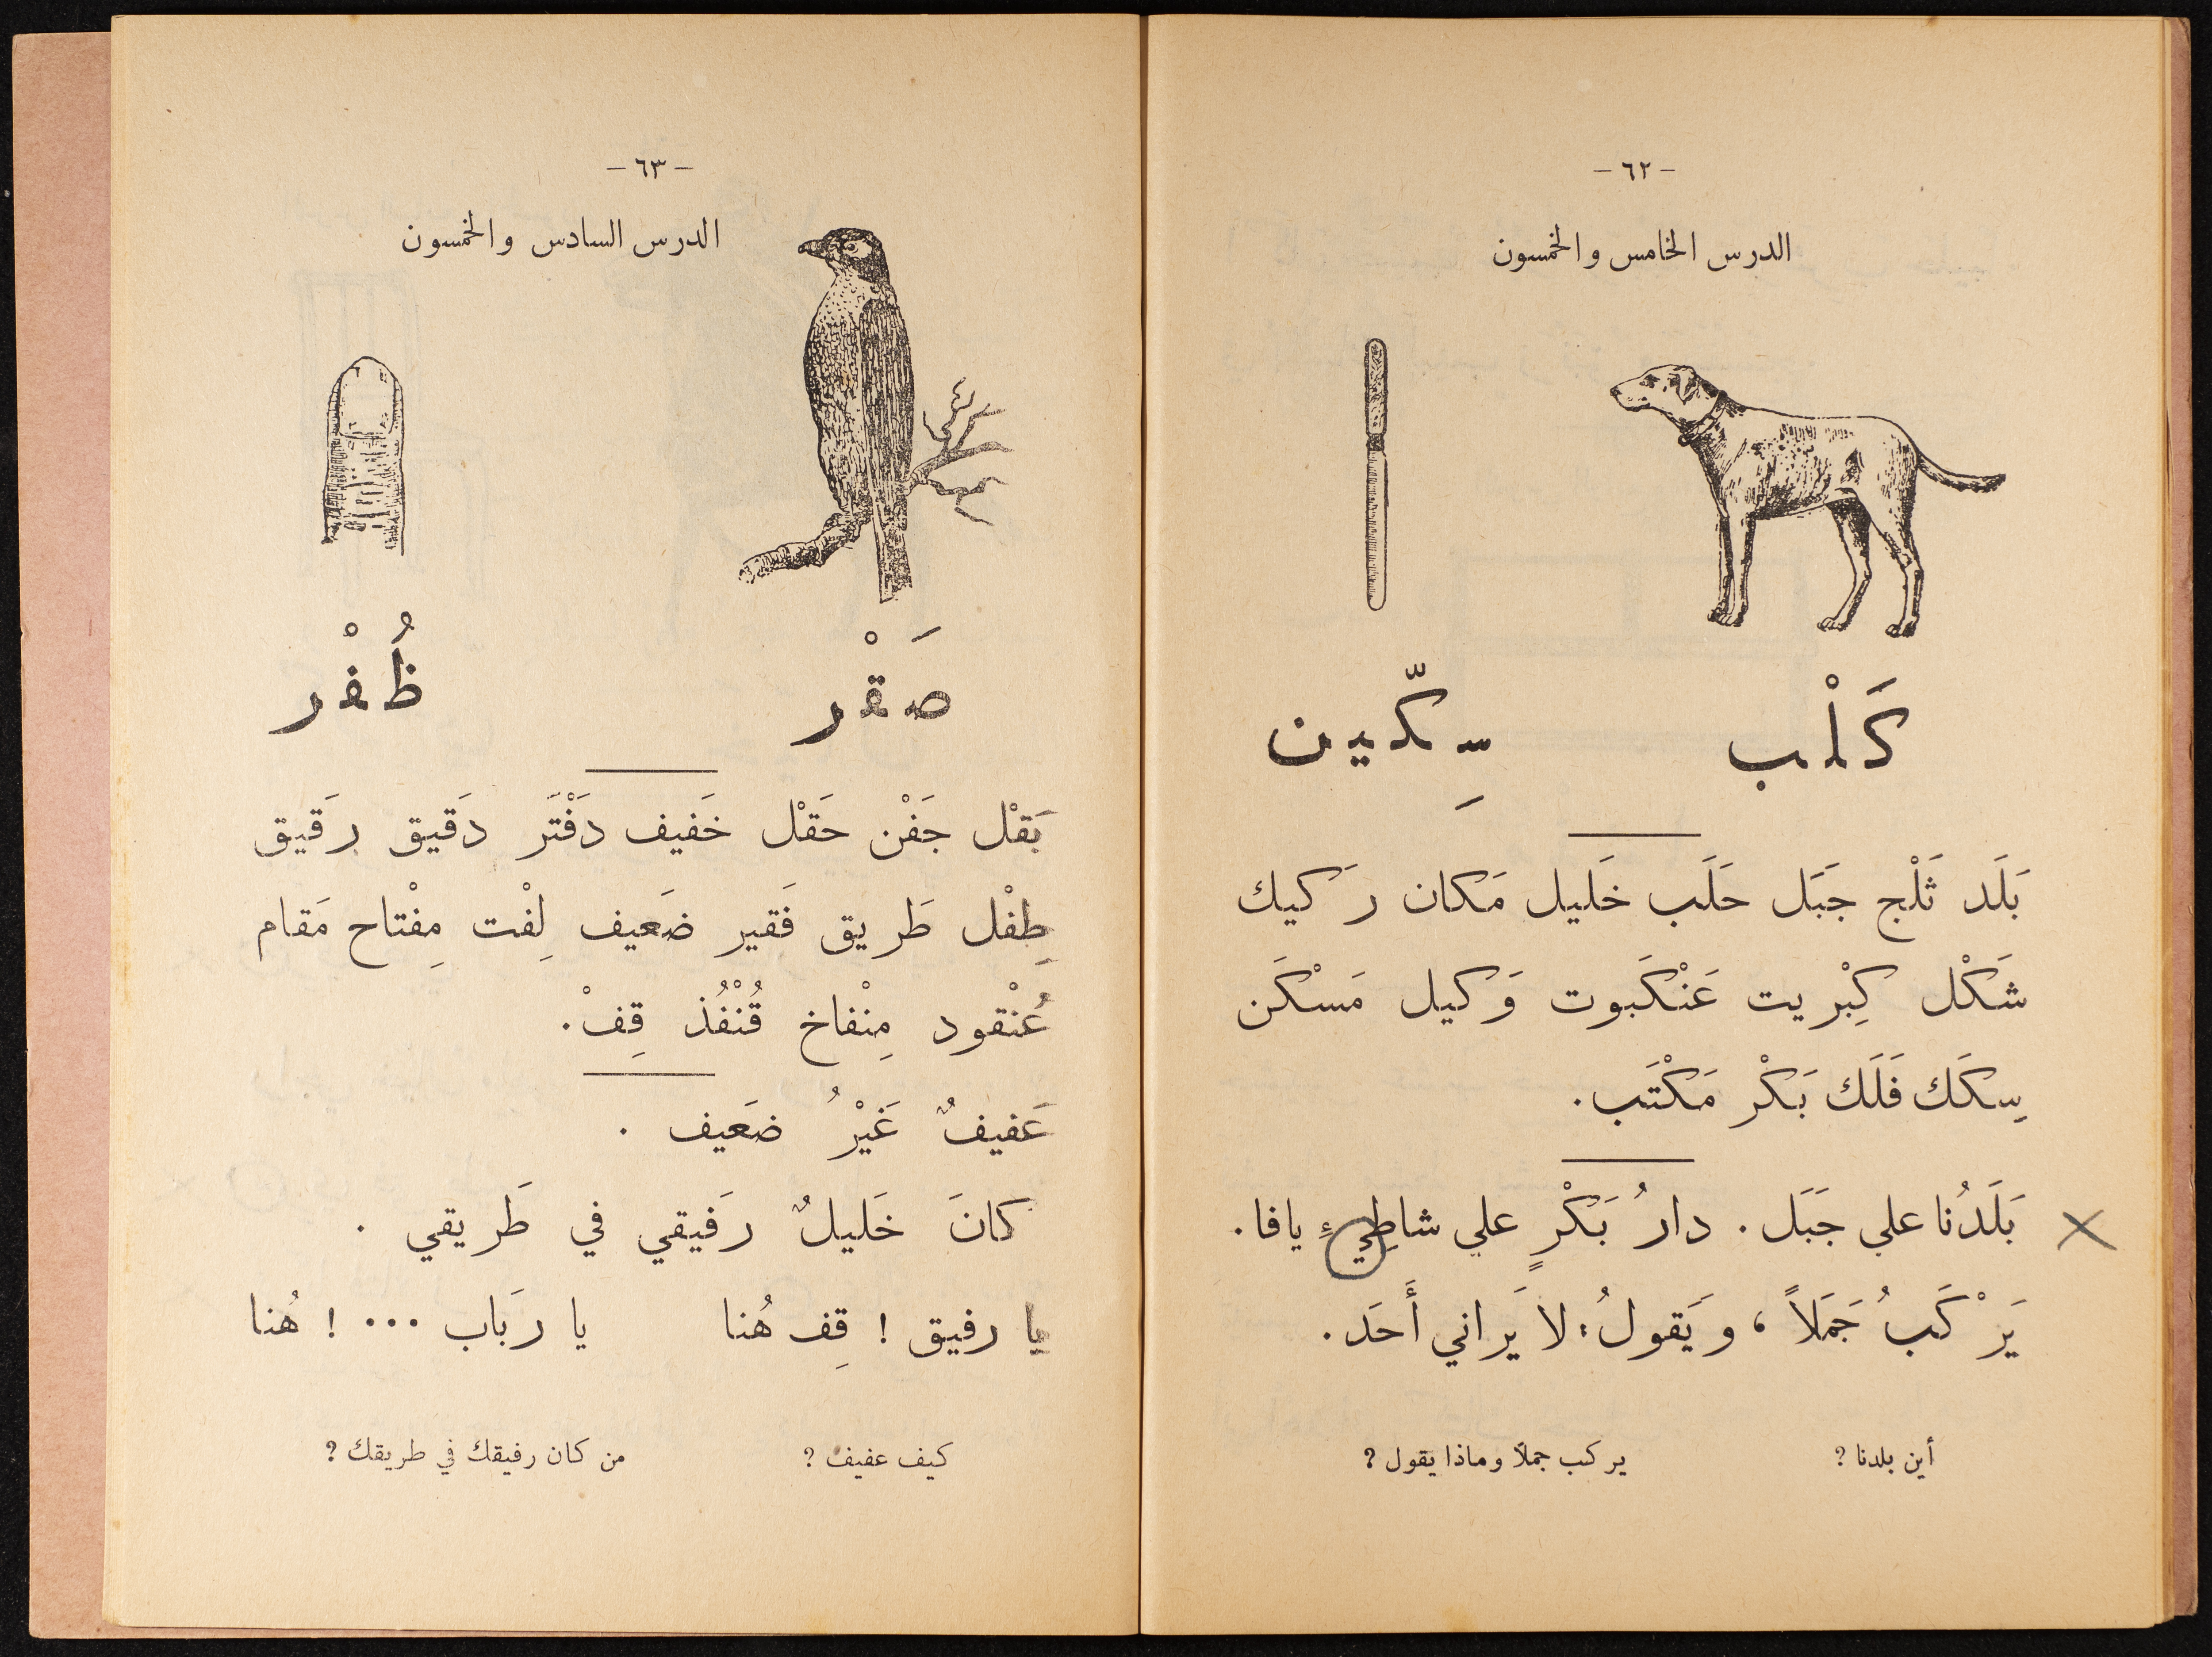 - ٦٢ -
الدرس الخامس والخمسون
كَلْب سِكّين
بَلَد ثَلْج جَبَل حَلَب خَليل مَكان رَكيك
شَكْل كِبْريت عَنْكَبوت وَكيل مَسْكَن
سِكَك فَلَك بَكْر مَكْتَب.
بَلَدُنا علي جَبَل. دارُ بَكْرٍ علي شاطِيءِ يافا.
يَرْكَبُ جَمَلاً، وَيَقولُ: لا يَراني أَحَد.
أين بلدنا؟ يركب جملاً وماذا يقول؟
- ٦٣ -
الدرس السادس والخمسون
صَقْر ظُفْر
بَقْل جَفْن حَقْل خَفيف دَفْتَر دَقيق رَقيق
طِفْل طَريق فَقير ضَعيف لِفْت مِفْتاح مَقام
عُنْقود مِنْفاخ قُنْفُذ قِفْ.
عَفيفٌ غَيْرُ ضَعيف.
كانَ خَليلٌ رَفيقي في طَريقي.
يا رفيق! قِف هُنا يا رَباب ...! هُنا
كيف عفيف؟ من كان رفيقك في طريقك؟